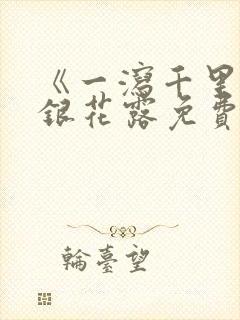 《一瀉千里
銀花露免費
輪臺望